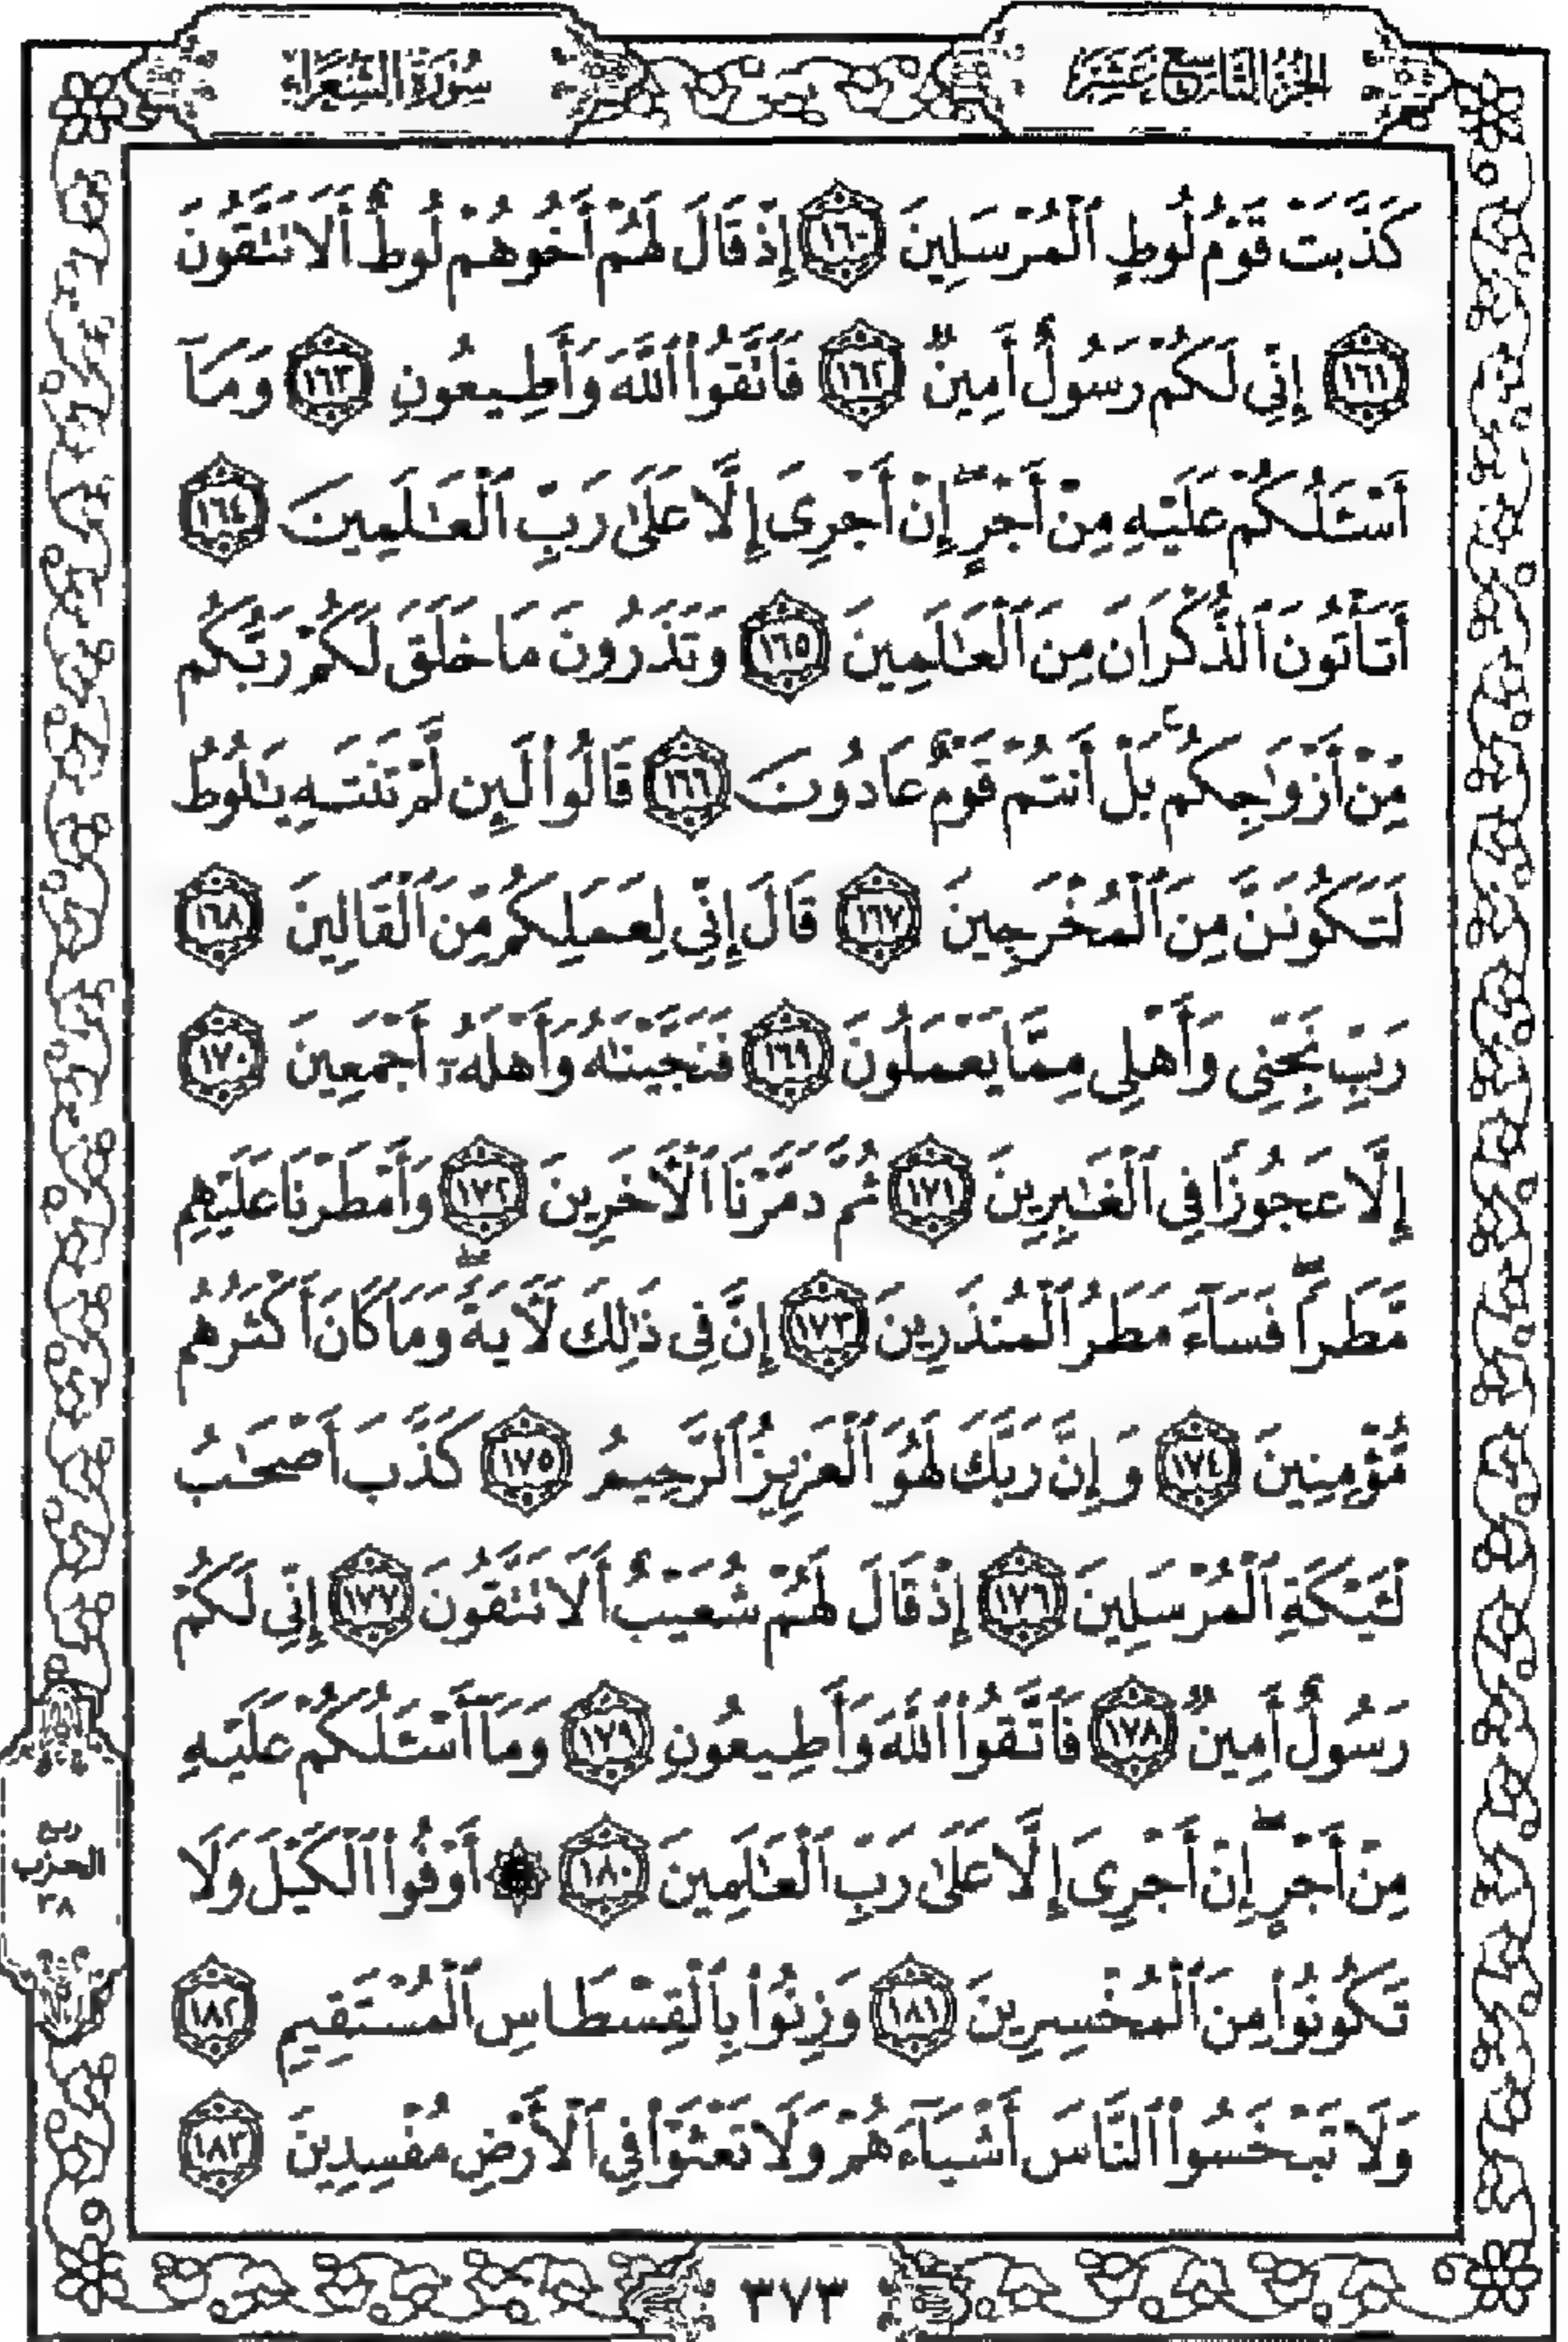 الجزء التاسع عشر
سورة الشعراء
كَذَّبَتْ قَوْمُ لُوطٍ ٱلْمُرْسَلِينَ ١٦٠ إِذْ قَالَ لَهُمْ أَخُوهُمْ لُوطٌ أَلَا تَتَّقُونَ
١٦١ إِنِّي لَكُمْ رَسُولٌ أَمِينٌ ١٦٢ فَٱتَّقُوا۟ ٱللَّهَ وَأَطِيعُونِ ١٦٣ وَمَآ
أَسْـَٔلُكُمْ عَلَيْهِ مِنْ أَجْرٍ ۖ إِنْ أَجْرِىَ إِلَّا عَلَىٰ رَبِّ ٱلْعَـٰلَمِينَ ١٦٤
أَتَأْتُونَ ٱلذُّكْرَانَ مِنَ ٱلْعَـٰلَمِينَ ١٦٥ وَتَذَرُونَ مَا خَلَقَ لَكُمْ رَبُّكُم
مِّنْ أَزْوَٰجِكُم ۚ بَلْ أَنتُمْ قَوْمٌ عَادُونَ ١٦٦ قَالُوا۟ لَئِن لَّمْ تَنتَهِ يَـٰلُوطُ
لَتَكُونَنَّ مِنَ ٱلْمُخْرَجِينَ ١٦٧ قَالَ إِنِّى لِعَمَلِكُم مِّنَ ٱلْقَالِينَ ١٦٨
رَبِّ نَجِّنِى وَأَهْلِى مِمَّا يَعْمَلُونَ ١٦٩ فَنَجَّيْنَـٰهُ وَأَهْلَهُۥٓ أَجْمَعِينَ ١٧٠
إِلَّا عَجُوزًا فِى ٱلْغَـٰبِرِينَ ١٧١ ثُمَّ دَمَّرْنَا ٱلْـَٔاخَرِينَ ١٧٢ وَأَمْطَرْنَا عَلَيْهِم
مَّطَرًا ۖ فَسَآءَ مَطَرُ ٱلْمُنذَرِينَ ١٧٣ إِنَّ فِى ذَٰلِكَ لَـَٔايَةً ۖ وَمَا كَانَ أَكْثَرُهُم
مُّؤْمِنِينَ ١٧٤ وَإِنَّ رَبَّكَ لَهُوَ ٱلْعَزِيزُ ٱلرَّحِيمُ ١٧٥ كَذَّبَ أَصْحَـٰبُ
لْـَٔيْكَةِ ٱلْمُرْسَلِينَ ١٧٦ إِذْ قَالَ لَهُمْ شُعَيْبٌ أَلَا تَتَّقُونَ ١٧٧ إِنِّى لَكُمْ
رَسُولٌ أَمِينٌ ١٧٨ فَٱتَّقُوا۟ ٱللَّهَ وَأَطِيعُونِ ١٧٩ وَمَآ أَسْـَٔلُكُمْ عَلَيْهِ
مِنْ أَجْرٍ ۖ إِنْ أَجْرِىَ إِلَّا عَلَىٰ رَبِّ ٱلْعَـٰلَمِينَ ١٨٠ ۞ أَوْفُوا۟ ٱلْكَيْلَ وَلَا
تَكُونُوا۟ مِنَ ٱلْمُخْسِرِينَ ١٨١ وَزِنُوا۟ بِٱلْقِسْطَاسِ ٱلْمُسْتَقِيمِ ١٨٢
وَلَا تَبْخَسُوا۟ ٱلنَّاسَ أَشْيَآءَهُمْ وَلَا تَعْثَوْا۟ فِى ٱلْأَرْضِ مُفْسِدِينَ ١٨٣
ربع
الحزب
٣٨
٣٧٣